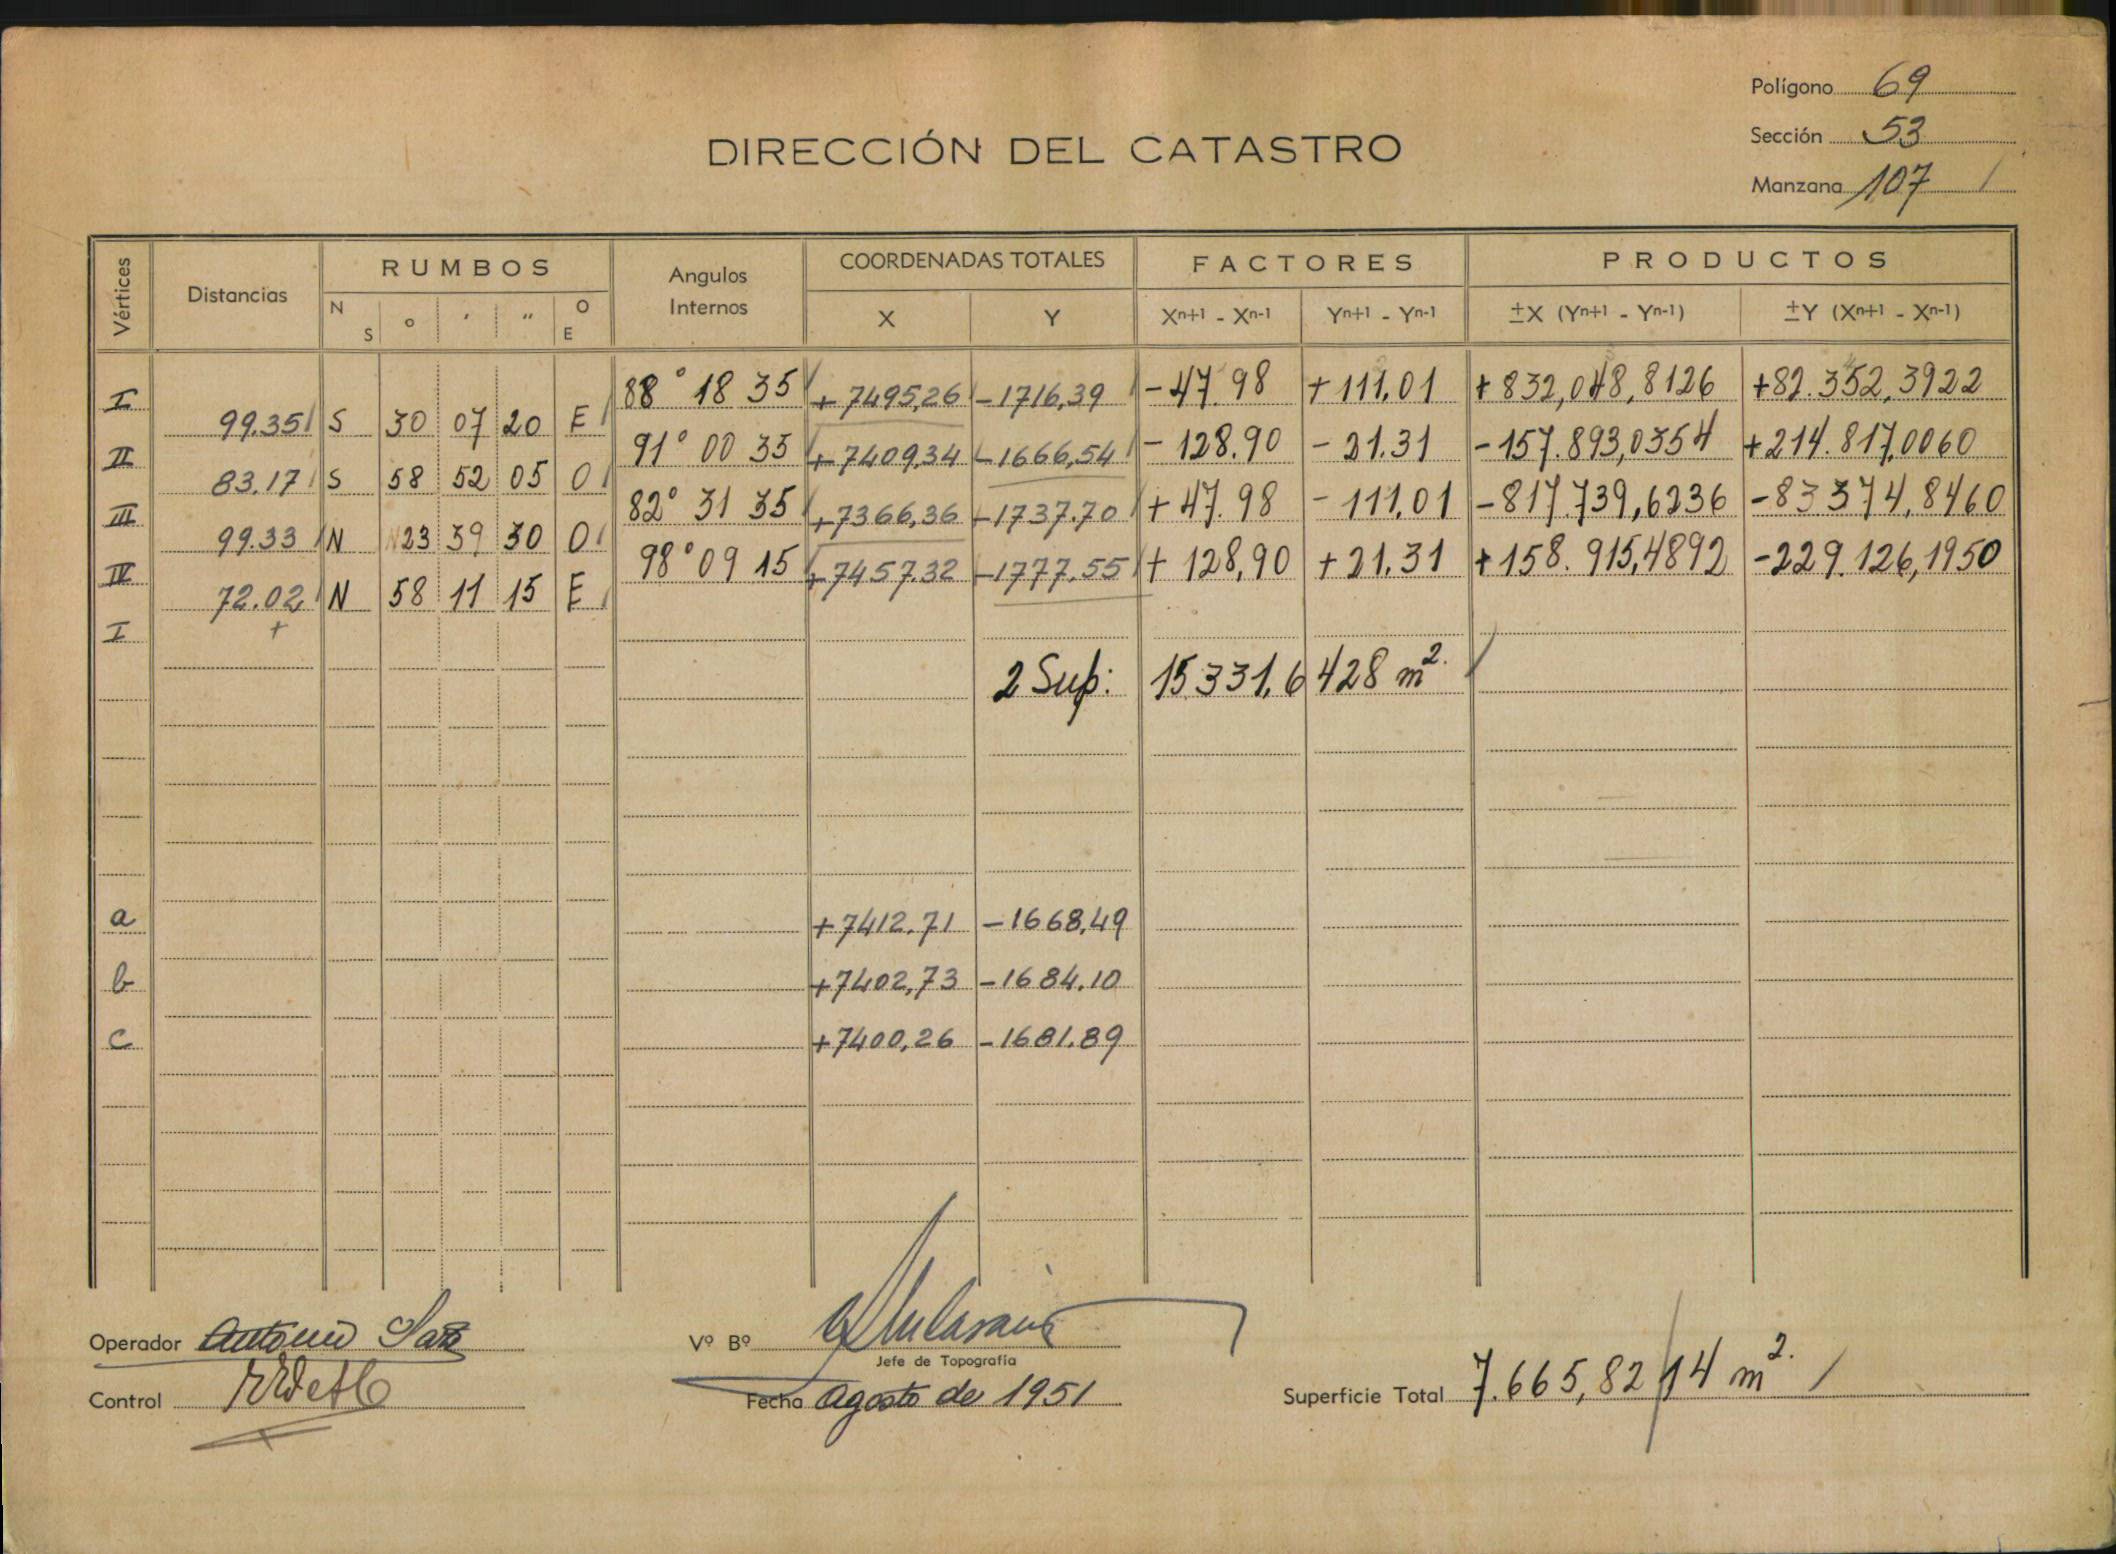 Polígono 69
Sección 53
Manzana 107
DIRECCIÓN DEL CATASTRO
Vértices Distancias RUMBOS Angulos Internos COORDENADAS TOTALES FACTORES PRODUCTOS
N S ° ' " O E X Y Xn+1 - Xn-1 Yn+1 - Yn-1 ±X (Yn+1 - Yn-1) ±Y (Xn+1 - Xn-1)
I 88° 18 35 +7495,26 -1716,39 -47.98 +111,01 +832,048,8126 +82.352,3922
99.35 S 30 07 20 E
II 91° 00 35 +7409,34 -1666,54 -128.90 -21.31 -157.893,0354 +214.817,0060
83.17 S 58 52 05 O
III 82° 31 35 +7366,36 -1737.70 +47.98 -111,01 -817.739,6236 -83374,8460
99.33 N 23 39 30 O
IV 98° 09 15 +7457.32 -1777.55 +128,90 +21.31 +158.915,4892 -229.126,1950
72.02 N 58 11 15 E
I
2 Sup: 15331,6428 m2.
a +7412.71 -1668,49
b +7402,73 -1684.10
c +7400,26 -1681.89
Operador Antonio
Vº Bº
Jefe de Topografía
Control
Fecha agosto de 1951
Superficie Total 7.665,8214 m2.